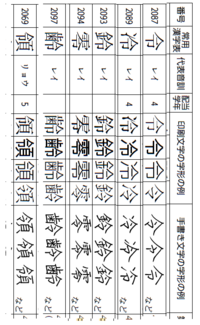 番号 常用漢字表 代表音訓 配当学年 印刷文字の字形の例 手書き文字の字形の例
2087 令 レイ 4 令 令 令 令 令 令 令 など
2089 冷 レイ 4 冷 冷 冷 冷 冷 冷 冷 など
2093 鈴 レイ 鈴 鈴 鈴 鈴 鈴 鈴 鈴 など
2094 零 レイ 零 零 零 零 零 零 零 など
2097 齢 レイ 齢 齢 齢 齢 齢 齢 齢 など
2069 領 リョウ 5 領 領 領 領 領 領 領 など